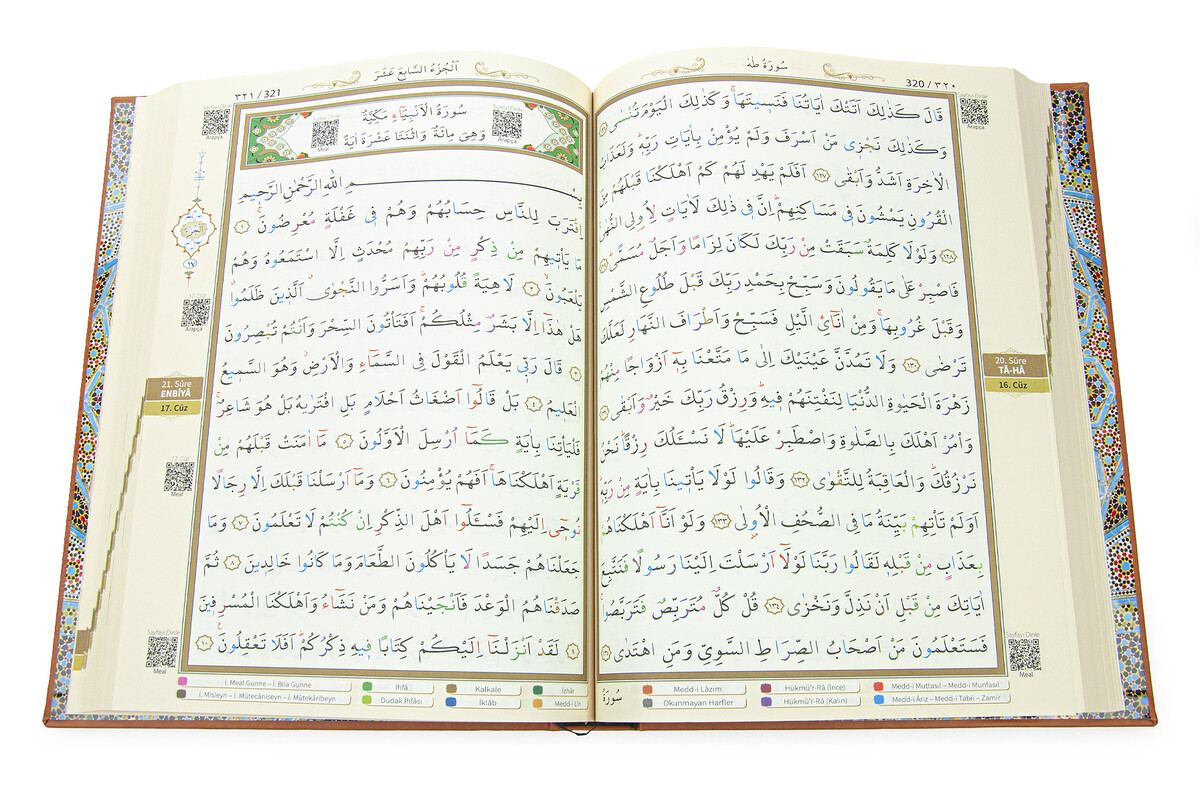 سُورَةُ طٰهٰ
320 / ٣٢٠
Sayfayı Dinle
Arapça
قَالَ كَذٰلِكَ اَتَتْكَ اٰيَاتُنَا فَنَس۪يتَهَاۚ وَكَذٰلِكَ الْيَوْمَ تُنْسٰى ﴿١٢٦﴾
وَكَذٰلِكَ نَجْز۪ي مَنْ اَسْرَفَ وَلَمْ يُؤْمِنْ بِاٰيَاتِ رَبِّه۪ۜ وَلَعَذَابُ
الْاٰخِرَةِ اَشَدُّ وَاَبْقٰى ﴿١٢٧﴾ اَفَلَمْ يَهْدِ لَهُمْ كَمْ اَهْلَكْنَا قَبْلَهُمْ مِنَ
الْقُرُونِ يَمْشُونَ ف۪ي مَسَاكِنِهِمْۜ اِنَّ ف۪ي ذٰلِكَ لَاٰيَاتٍ لِاُو۬لِي النُّهٰى
﴿١٢٨﴾ وَلَوْلَا كَلِمَةٌ سَبَقَتْ مِنْ رَبِّكَ لَكَانَ لِزَامًا وَاَجَلٌ مُسَمًّىۜ ﴿١٢٩﴾
فَاصْبِرْ عَلٰى مَا يَقُولُونَ وَسَبِّحْ بِحَمْدِ رَبِّكَ قَبْلَ طُلُوعِ الشَّمْسِ
وَقَبْلَ غُرُوبِهَاۚ وَمِنْ اٰنَٓائِ الَّيْلِ فَسَبِّحْ وَاَطْرَافَ النَّهَارِ لَعَلَّكَ
تَرْضٰى ﴿١٣٠﴾ وَلَا تَمُدَّنَّ عَيْنَيْكَ اِلٰى مَا مَتَّعْنَا بِه۪ٓ اَزْوَاجًا مِنْهُمْ
زَهْرَةَ الْحَيٰوةِ الدُّنْيَا لِنَفْتِنَهُمْ ف۪يهِۜ وَرِزْقُ رَبِّكَ خَيْرٌ وَاَبْقٰى ﴿١٣١﴾
وَأْمُرْ اَهْلَكَ بِالصَّلٰوةِ وَاصْطَبِرْ عَلَيْهَاۜ لَا نَسْـَٔلُكَ رِزْقًاۜ نَحْنُ
نَرْزُقُكَۜ وَالْعَاقِبَةُ لِلتَّقْوٰى ﴿١٣٢﴾ وَقَالُوا لَوْلَا يَأْت۪ينَا بِاٰيَةٍ مِنْ رَبِّه۪ۜ
اَوَلَمْ تَأْتِهِمْ بَيِّنَةُ مَا فِي الصُّحُفِ الْاُو۫لٰى ﴿١٣٣﴾ وَلَوْ اَنَّٓا اَهْلَكْنَاهُمْ
بِعَذَابٍ مِنْ قَبْلِه۪ لَقَالُوا رَبَّنَا لَوْلَٓا اَرْسَلْتَ اِلَيْنَا رَسُولًا فَنَتَّبِعَ
اٰيَاتِكَ مِنْ قَبْلِ اَنْ نَذِلَّ وَنَخْزٰى ﴿١٣٤﴾ قُلْ كُلٌّ مُتَرَبِّصٌ فَتَرَبَّصُواۚ
فَسَتَعْلَمُونَ مَنْ اَصْحَابُ الصِّرَاطِ السَّوِيِّ وَمَنِ اهْتَدٰى ﴿١٣٥﴾
20. Sûre
TÂ-HÂ
16. Cüz
Sayfayı Dinle
Meal
Medd-i Lâzım
Hükmü'r-Râ (İnce)
Medd-i Muttasıl – Medd-i Munfasıl
Okunmayan Harfler
Hükmü'r-Râ (Kalın)
Medd-i Ârız – Medd-i Tabiî – Zamir
سُورَةُ
اَلْجُزْءُ السَّابِعَ عَشَرَ
٣٢١ / 321
Sayfayı Dinle
Arapça
سُورَةُ الْاَنْبِيَٓاءِ مَكِّيَّةٌ
وَهِيَ مِائَةٌ وَاثْنَتَا عَشْرَةَ اٰيَةً
Sureyi Dinle
Arapça
Meal
بِسْمِ اللّٰهِ الرَّحْمٰنِ الرَّح۪يمِ
اِقْتَرَبَ لِلنَّاسِ حِسَابُهُمْ وَهُمْ ف۪ي غَفْلَةٍ مُعْرِضُونَۚ ﴿١﴾
مَا يَأْت۪يهِمْ مِنْ ذِكْرٍ مِنْ رَبِّهِمْ مُحْدَثٍ اِلَّا اسْتَمَعُوهُ وَهُمْ
يَلْعَبُونَۙ ﴿٢﴾ لَاهِيَةً قُلُوبُهُمْۜ وَاَسَرُّوا النَّجْوٰىۗ اَلَّذ۪ينَ ظَلَمُواۗ
هَلْ هٰذَٓا اِلَّا بَشَرٌ مِثْلُكُمْۚ اَفَتَأْتُونَ السِّحْرَ وَاَنْتُمْ تُبْصِرُونَ
﴿٣﴾ قَالَ رَبّ۪ي يَعْلَمُ الْقَوْلَ فِي السَّمَٓاءِ وَالْاَرْضِۘ وَهُوَ السَّم۪يعُ
الْعَل۪يمُ ﴿٤﴾ بَلْ قَالُٓوا اَضْغَاثُ اَحْلَامٍ بَلِ افْتَرٰيهُ بَلْ هُوَ شَاعِرٌۚ
فَلْيَأْتِنَا بِاٰيَةٍ كَمَٓا اُرْسِلَ الْاَوَّلُونَ ﴿٥﴾ مَٓا اٰمَنَتْ قَبْلَهُمْ مِنْ
قَرْيَةٍ اَهْلَكْنَاهَاۚ اَفَهُمْ يُؤْمِنُونَ ﴿٦﴾ وَمَٓا اَرْسَلْنَا قَبْلَكَ اِلَّا رِجَالًا
نُوح۪ٓي اِلَيْهِمْ فَسْـَٔلُٓوا اَهْلَ الذِّكْرِ اِنْ كُنْتُمْ لَا تَعْلَمُونَ ﴿٧﴾ وَمَا
جَعَلْنَاهُمْ جَسَدًا لَا يَأْكُلُونَ الطَّعَامَ وَمَا كَانُوا خَالِد۪ينَ ﴿٨﴾ ثُمَّ
صَدَقْنَاهُمُ الْوَعْدَ فَاَنْجَيْنَاهُمْ وَمَنْ نَشَٓاءُ وَاَهْلَكْنَا الْمُسْرِف۪ينَ
﴿٩﴾ لَقَدْ اَنْزَلْنَٓا اِلَيْكُمْ كِتَابًا ف۪يهِ ذِكْرُكُمْۜ اَفَلَا تَعْقِلُونَ۟ ﴿١٠﴾
١٧
Arapça
21. Sûre
ENBİYÂ
17. Cüz
17. Cüz
Meal
Sayfayı Dinle
Meal
İ. Meal Gunne – İ. Bila Gunne
İhfâ
Kalkale
İzhâr
İ. Misleyn – İ. Mütecâniseyn – İ. Mütekâribeyn
Dudak İhfâsı
İklâb
Medd-i Lîn